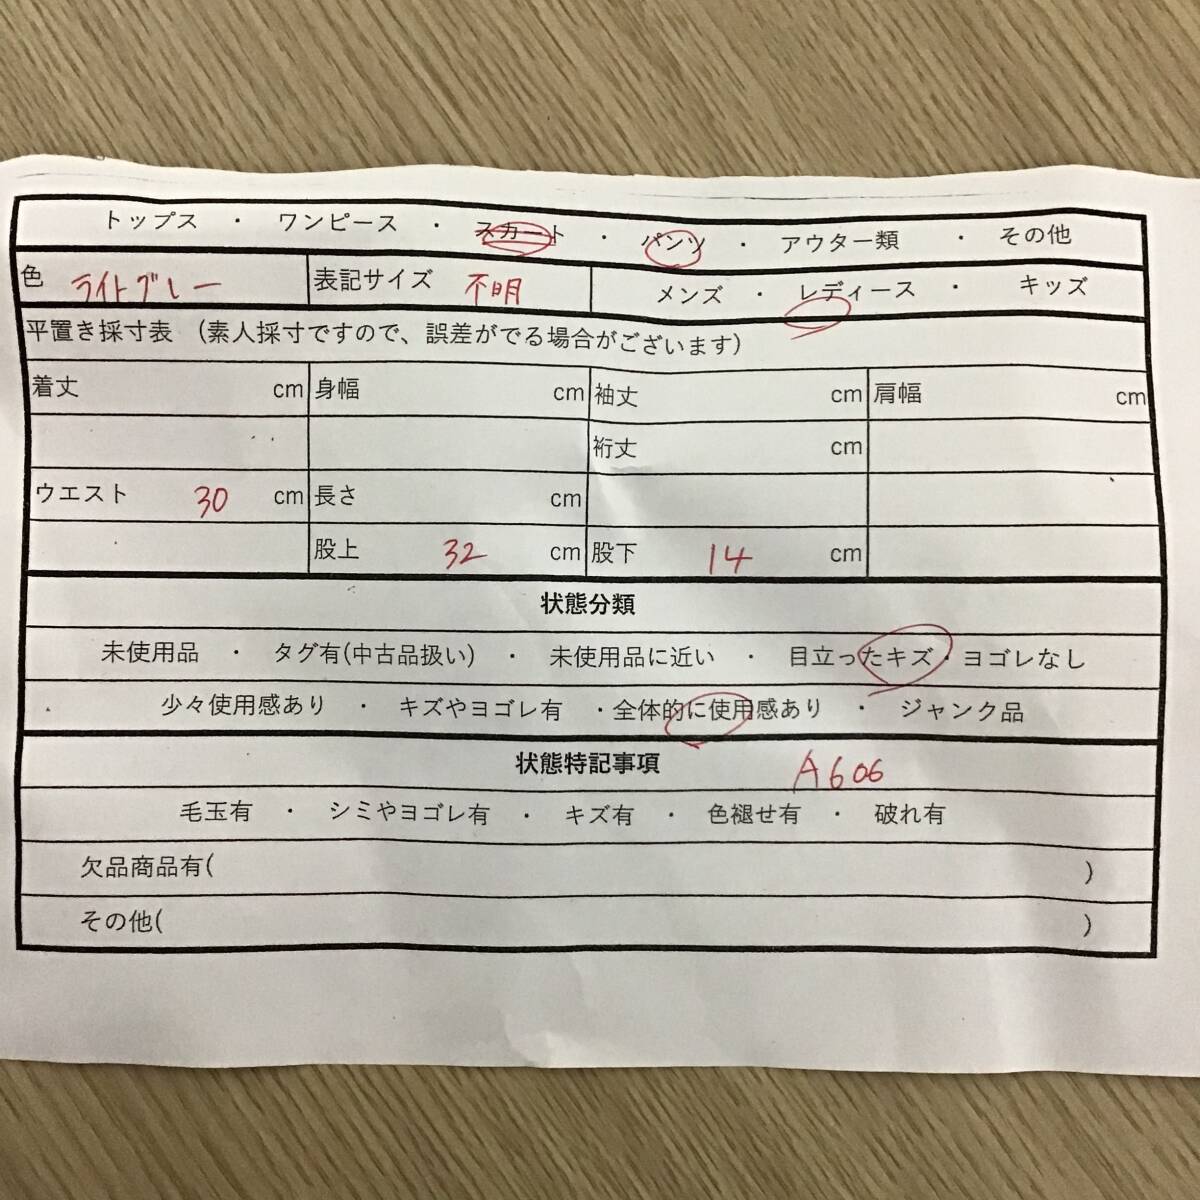 トップス ・ ワンピース ・ スカート ・ パンツ ・ アウター類 ・ その他
色 ライトグレー 表記サイズ 不明 メンズ ・ レディース ・ キッズ
平置き採寸表 (素人採寸ですので、誤差がでる場合がございます)
着丈 cm 身幅 cm 袖丈 cm 肩幅 cm
裄丈 cm
ウエスト 30 cm 長さ cm
股上 32 cm 股下 14 cm
状態分類
未使用品 ・ タグ有(中古品扱い) ・ 未使用品に近い ・ 目立ったキズ・ヨゴレなし
少々使用感あり ・ キズやヨゴレ有 ・全体的に使用感あり ・ ジャンク品
状態特記事項 A606
毛玉有 ・ シミやヨゴレ有 ・ キズ有 ・ 色褪せ有 ・ 破れ有
欠品商品有( )
その他( )